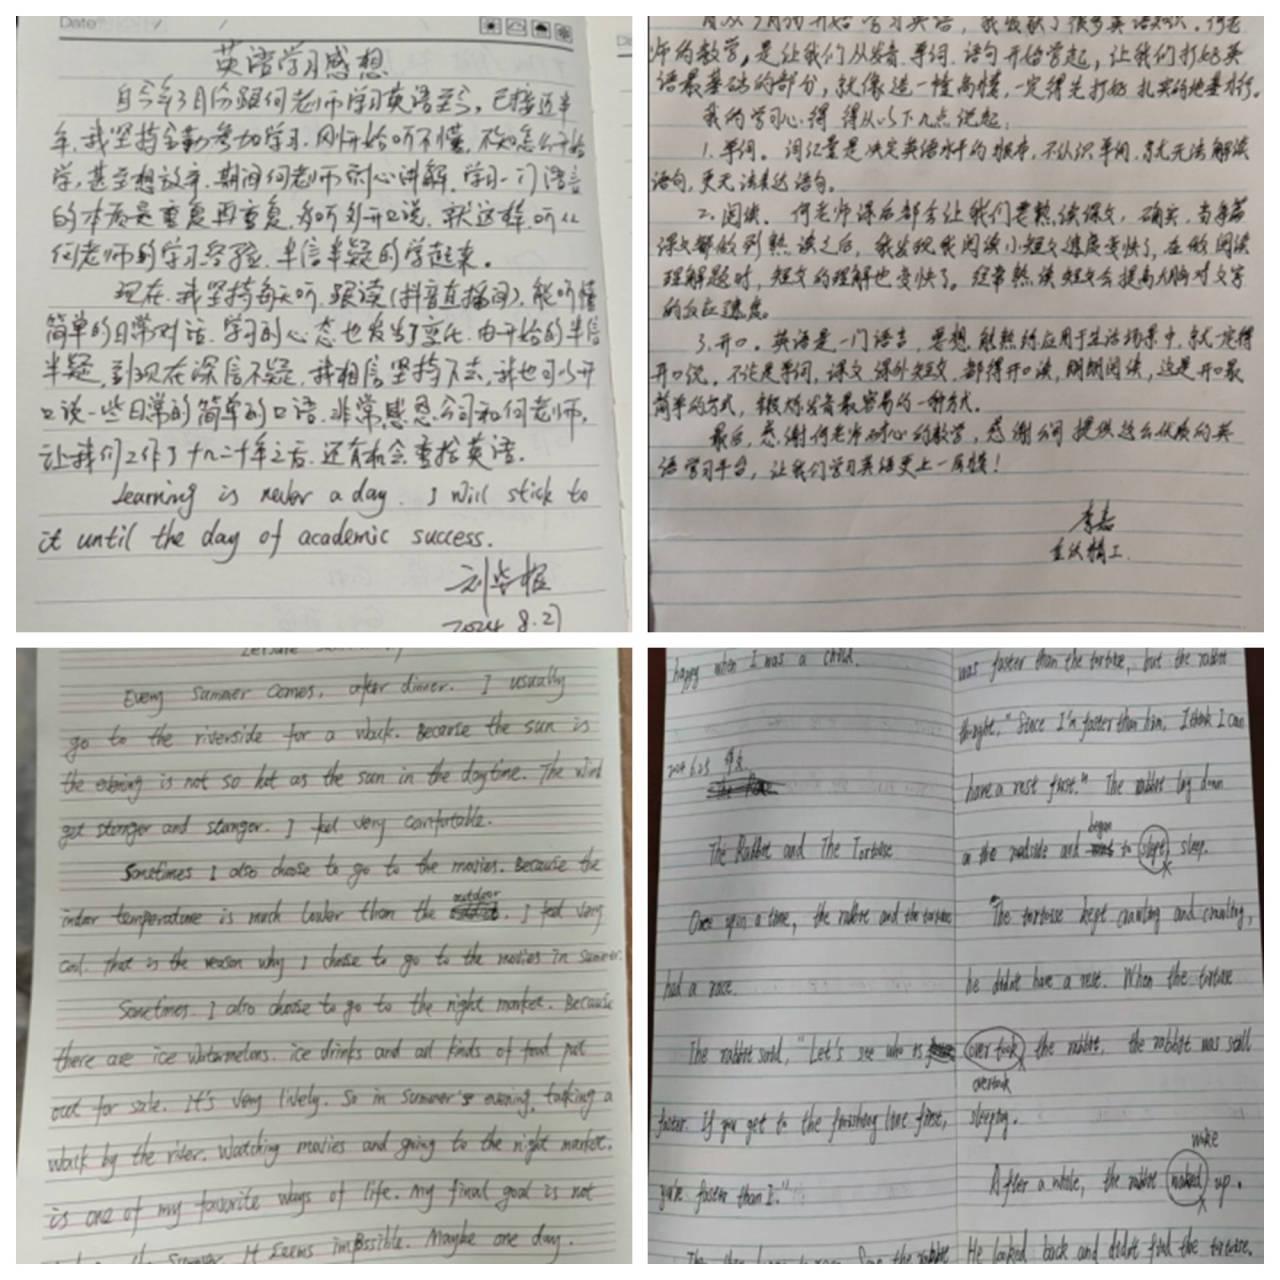 Date
英语学习感想
自今年3月份跟何老师学习英语至今，已接近半
年，我坚持全勤参加学习，刚开始听不懂，不知怎么开始
学，甚至想放弃，期间何老师耐心讲解，学习一门语言
的本质是重复再重复，多听多开口说，就这样，听从
何老师的学习经验，半信半疑的学起来。
现在，我坚持每天听，跟读(抖音直播间)，能听懂
简单的日常对话，学习的心态也发生了变化，由开始的半信
半疑，到现在深信不疑，我相信坚持下去，我也可以开
口说一些日常的简单的口语，非常感恩公司和何老师，
让我们工作了十几二十年之后，还有机会重拾英语。
Learning is never a day. I will stick to
it until the day of academic success.
2024.8.27
师的教学，是让我们从发音、单词、语句开始学起，让我们打好英
语最基础的部分，就像造一幢高楼，一定得先打好扎实的地基才行。
我的学习心得 得从以下几点说起：
1. 单词。词汇量是决定英语水平的根本，不认识单词，就无法解读
语句，更无法表达语句。
2. 阅读。何老师课后都会让我们要熟读课文，确实，当每篇
课文都做到熟读之后，我发现我阅读小短文速度变快了，在做阅读
理解题时，短文的理解也变快了。经常熟读短文会提高大脑对文字
的反应速度。
3. 开口。英语是一门语言，要想能熟练应用于生活场景中，就一定得
开口说，不论是单词，课文，课外短文，都得开口读，朗朗阅读，这是开口最
简单的方式，锻炼发音最容易的一种方式。
最后，感谢何老师耐心的教学，感谢公司提供这么优质的英
语学习平台，让我们学习英语更上一层楼！
李嘉
精工
Every summer comes, after dinner. I usually
go to the riverside for a walk. Because the sun is
the evening is not so hot as the sun in the daytime. The wind
get stonger and stonger. I feel very comfortable.
Sometimes I also choose to go to the movies. Because the
outdoor
indoor temperature is much lower than the . I feel very
cool. That is the reason why I choose to go to the movies in summer.
Sometimes I also choose to go to the night market. Because
there are ice watermelons. ice drinks and all kinds of food put
out for sale. It's very lively. So in summer's evening, taking a
walk by the river. Watching movies and going to the night market.
is one of my favorite ways of life. My final goal is not
summer. It seems impossible. Maybe one day.
happy when I was a child.
2024.6.25 作文
The Rabbit and The Tortoise
Once upon a time, the rabbit and the tortoise
had a race.
The rabbit said, "Let's see who is
faster. If you get to the finishing line first,
you're faster than I."
was faster than the tortoise, but the rabbit
thought, "Since I'm faster than him, I think I can
have a rest first." The rabbit lay down
began
on the roadside and to slept sleep.
The tortoise kept crawling and crawling,
he didn't have a rest. When the tortoise
over took the rabbit, the rabbit was still
overtook
sleeping.
woke
After a while, the rabbit waked up.
He looked back and didn't find the tortoise.